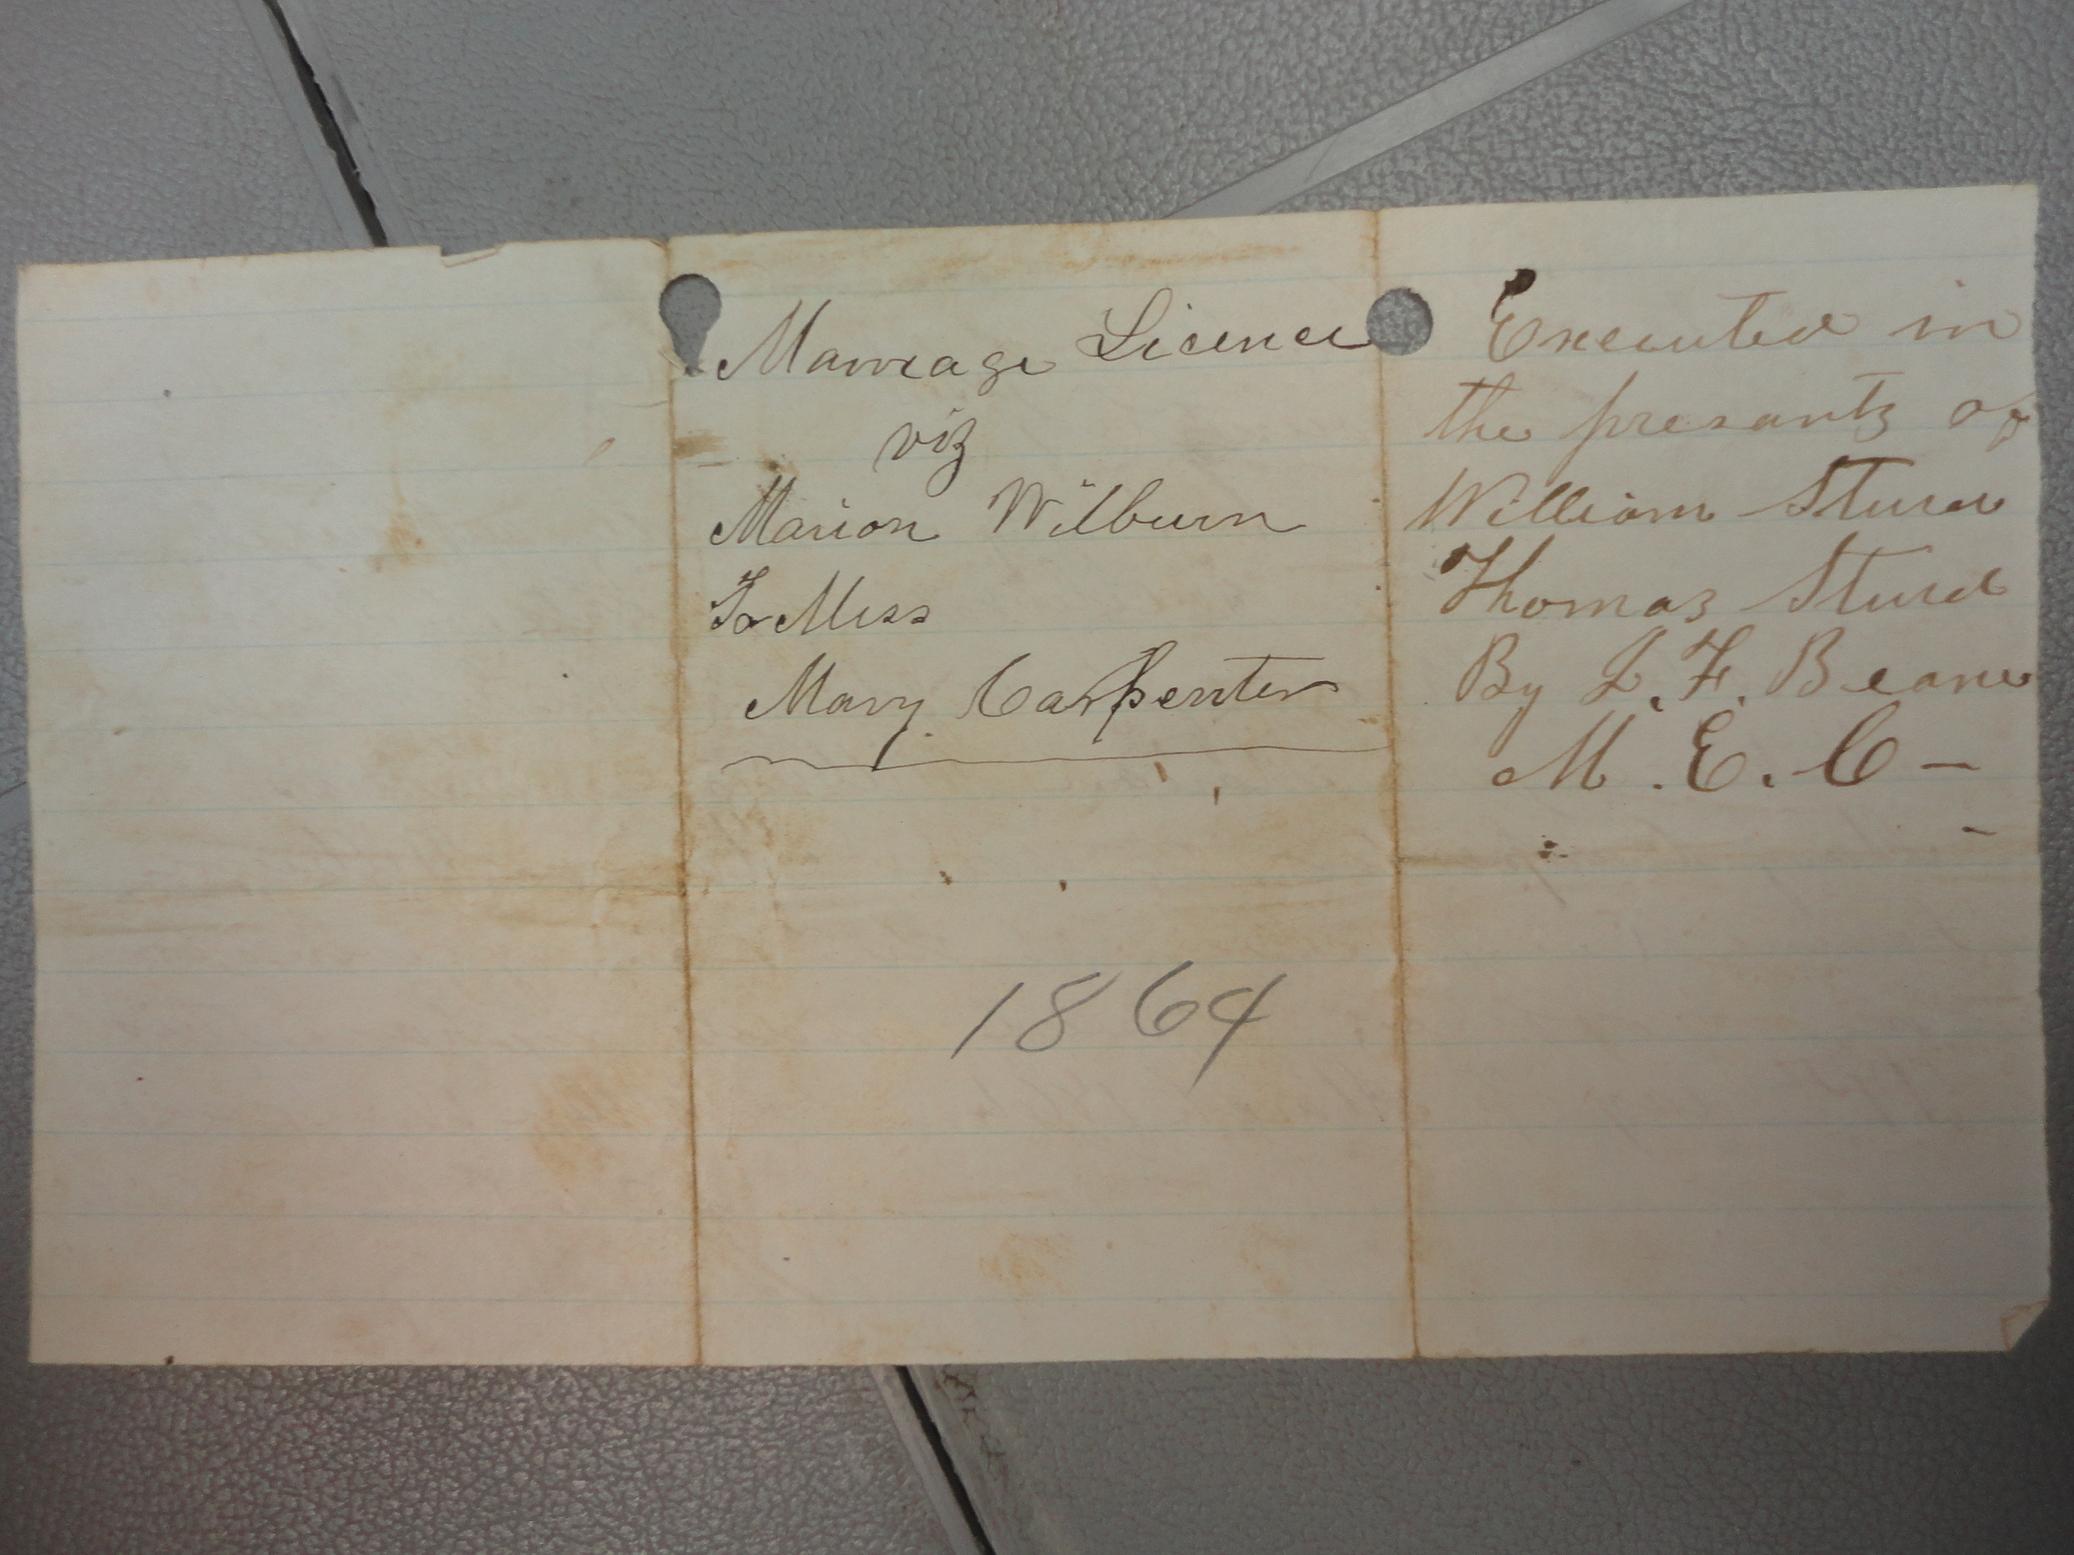 Marriage Licence
viz
Marion Wilburn
To Miss
Mary Carpenter
1864
Executed in
the presants of
William Sturd
Thomas Sturd
By L. F. Beane
M. E. C -